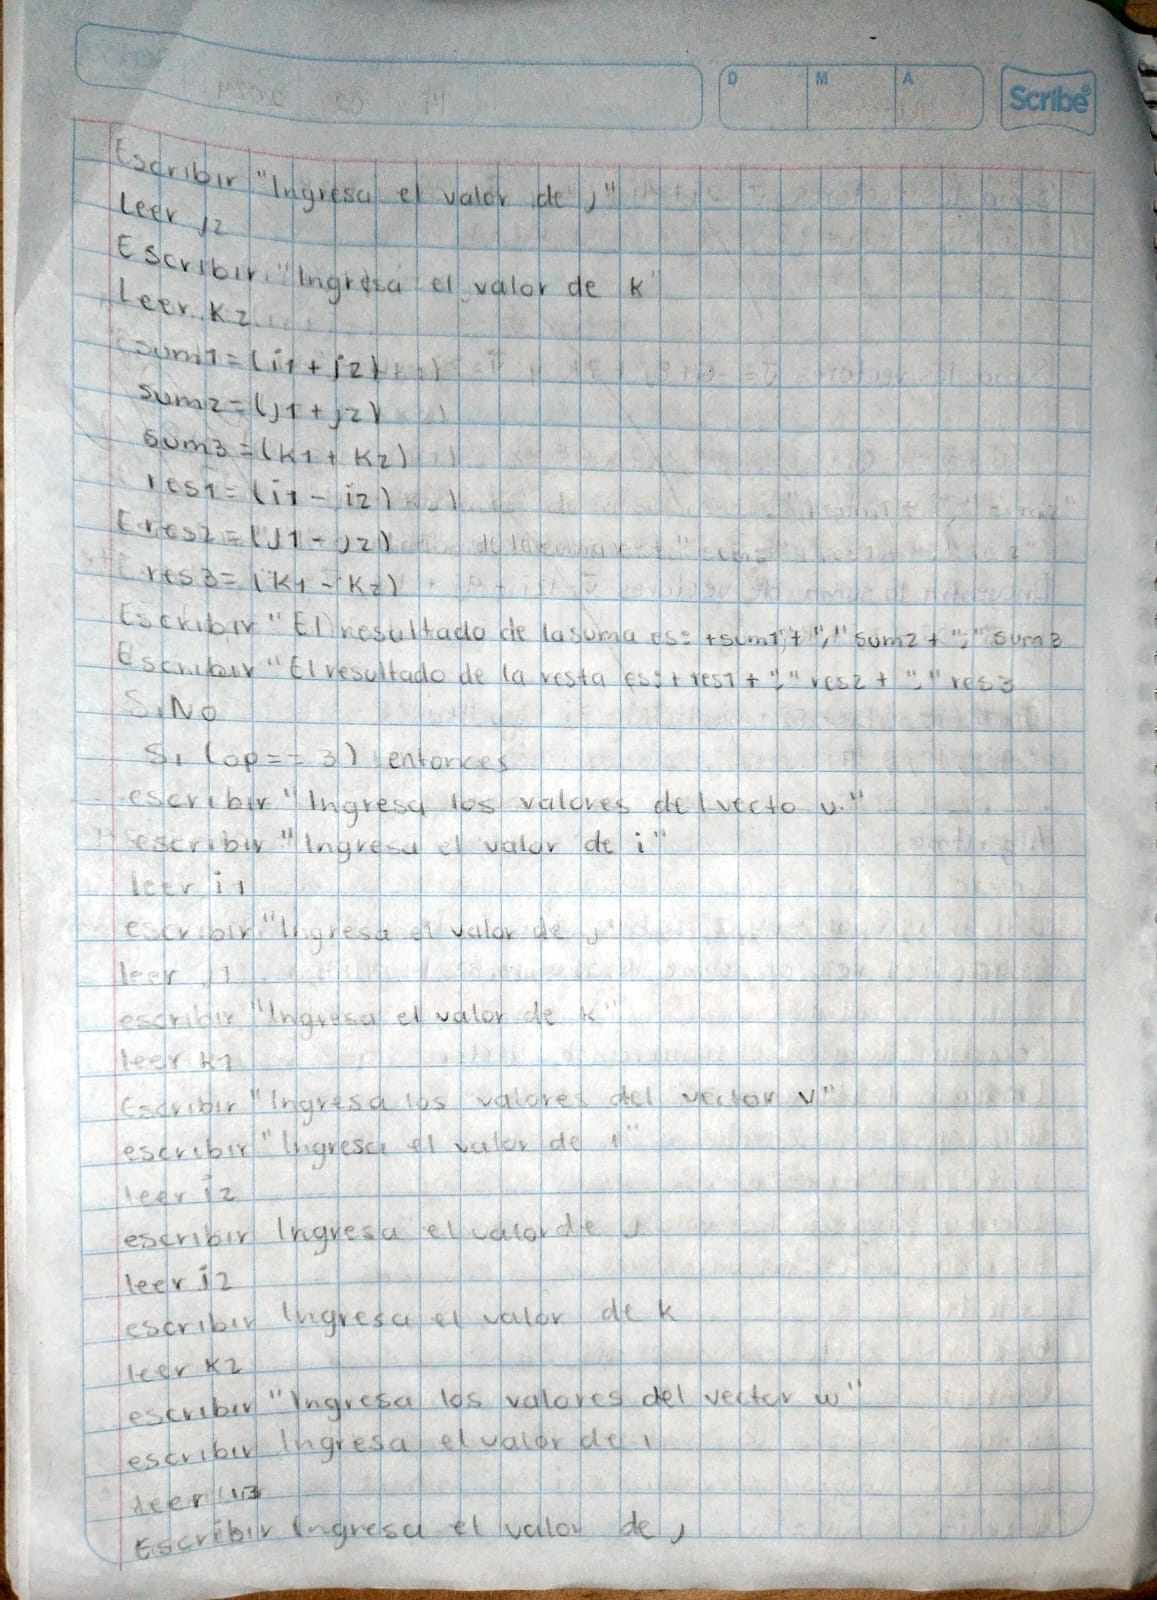 D M A
Scribe
Escribir "Ingresa el valor de j"
Leer j2
Escribir "Ingresa el valor de k"
Leer k2
sum1=(i1+j2)
sum2=(j1+j2)
sum3=(k1+k2)
res1=(i1-i2)
res2=(j1-j2)
res3=(k1-k2)
Escribir "El resultado de la suma es: +sum1+ "," sum2 + "," sum3
Escribir "El resultado de la resta es: + res1 + "," res2 + "," res3
SiNo
Si (op==3) entonces
escribir "Ingresa los valores del vecto u."
escribir "Ingresa el valor de i"
leer i1
escribir "Ingresa el valor de j"
leer j1
escribir "Ingresa el valor de k"
leer k1
Escribir "Ingresa los valores del vector v"
escribir "Ingresa el valor de i"
leer i2
escribir Ingresa el valor de j
leer j2
escribir Ingresa el valor de k
leer k2
escribir "Ingresa los valores del vector w"
escribir Ingresa el valor de i
leer i3
Escribir Ingresa el valor de j